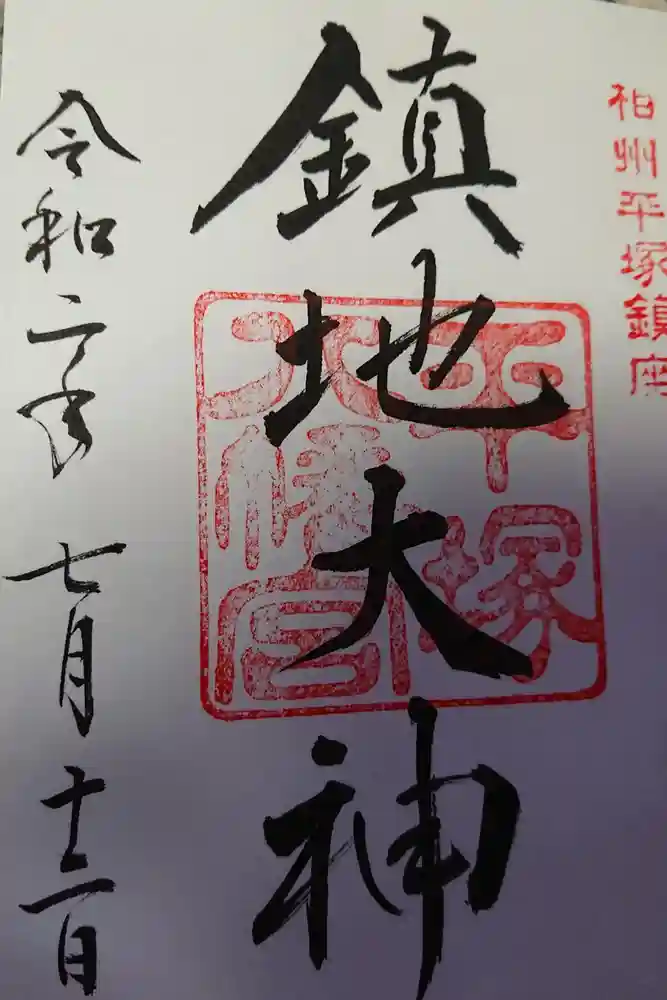 相州平塚鎮座
鎮地大神
平塚
八幡宮
令和二年七月十二日